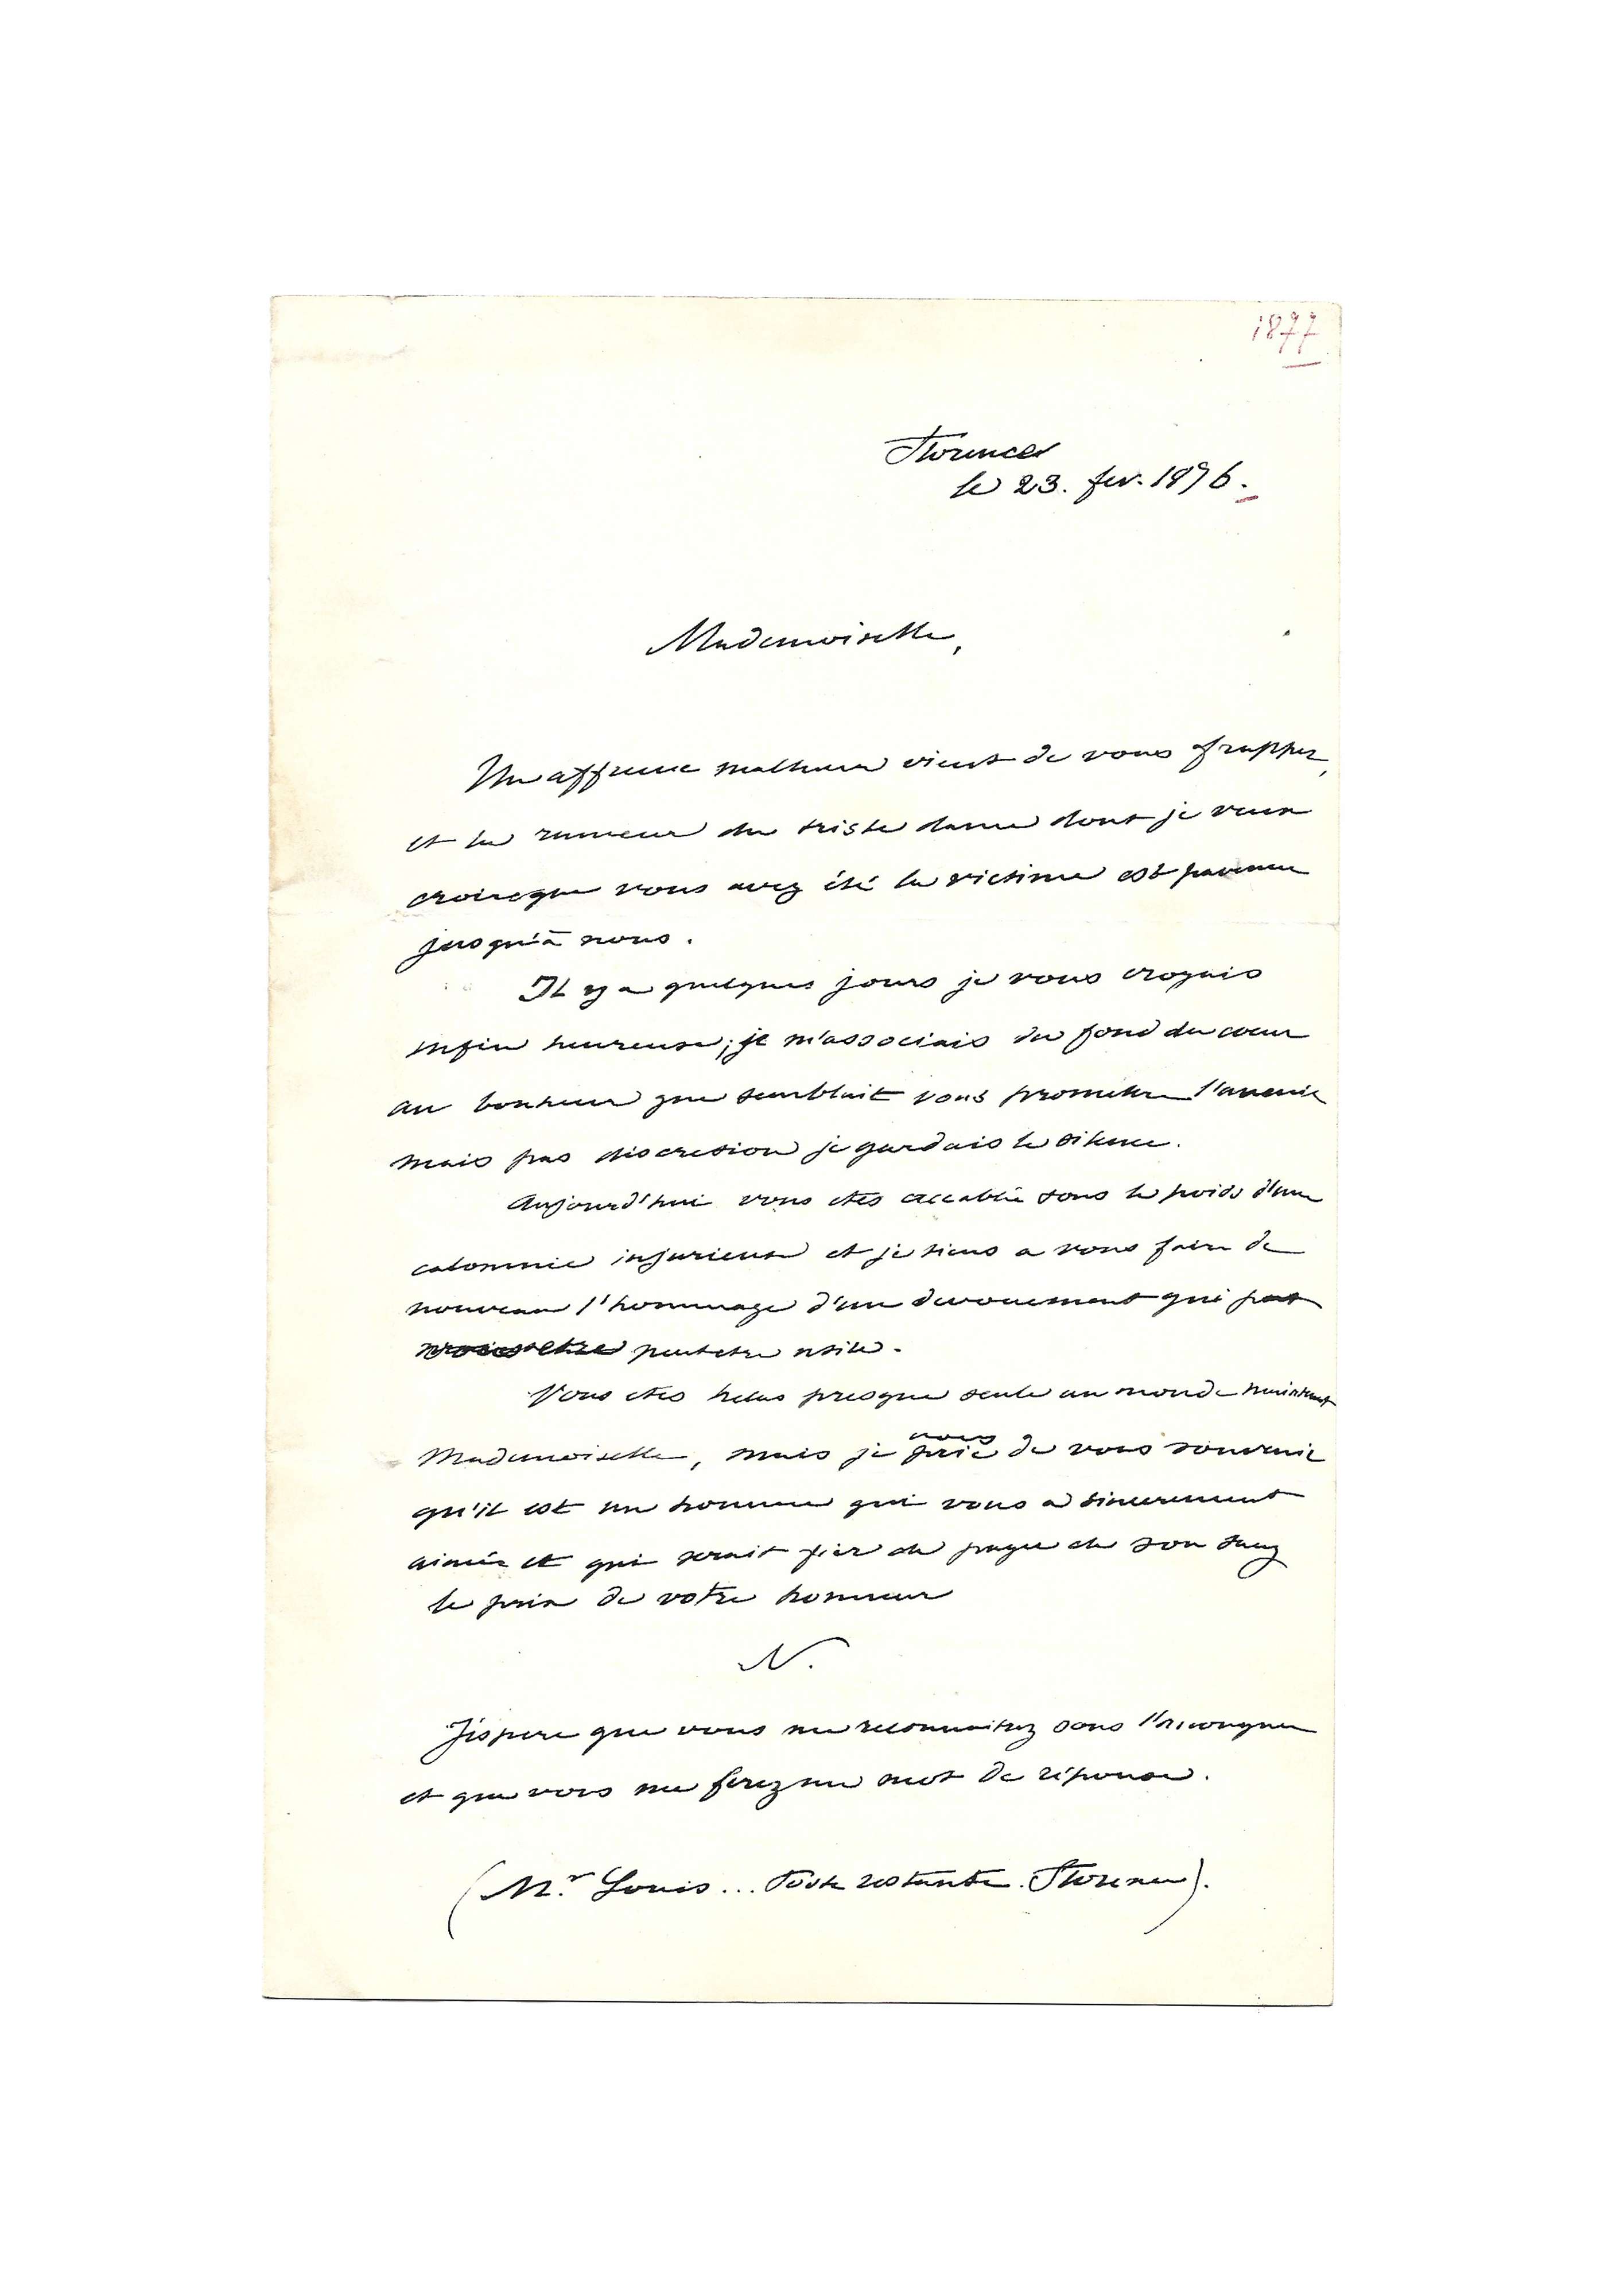 1877
Florence
le 23. fev. 1876.
Mademoiselle,
Un affreux malheur vient de vous frapper,
et la rumeur du triste dont je veux
croire que vous avez été la victime est parvenu
jusqu'à nous.
Il y a quelques jours je vous croyais
enfin heureuse; je m'associais du fond du coeur
au bonheur que semblait vous promettre l'avenir
mais pas discretion je gardais le silence.
Aujourd'hui vous etes accablée sous le poids d'une
calomnie injurieuse et je tiens a vous faire de
nouveau l'hommage d'un devouement qui
peutetre utile.
Vous etes helas presque seule au monde maintenant
vous
Mademoiselle, mais je prie de vous souvenir
qu'il est un homme qui vous a sincerement
aimée et qui serait fier de payer de son sang
le prix de votre honneur
N.
J'espere que vous me reconnaitrez sous l'incongru
et que vous me ferez un mot de réponse.
(Mr. Louis... Poste restante. Florence).